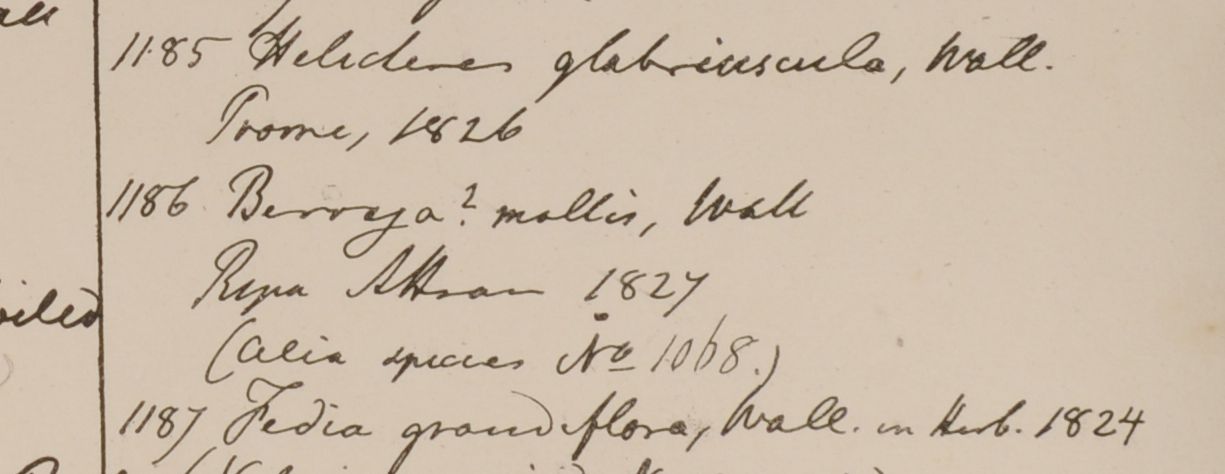 1185 Helicteres glabriuscula, Wall.
Prome, 1826
1186 Berrya? mollis, Wall
Ripa Attran 1827
(alia species No 1068.)
1187 Fedia grandiflora, Wall. in Herb. 1824